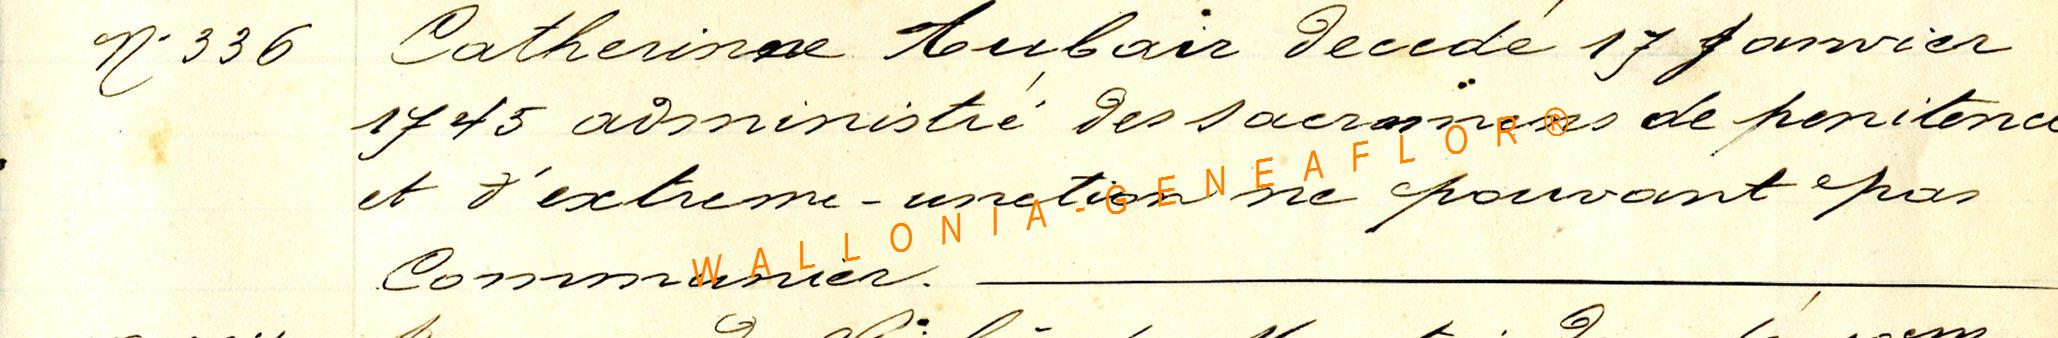 N° 336 Catherinne Aubair decede 17 Janvier
1745 administré des sacremens de penitence
et d'extreme-unction ne pouvant pas
Communier.
WALLONIA-GENEAFLOR®